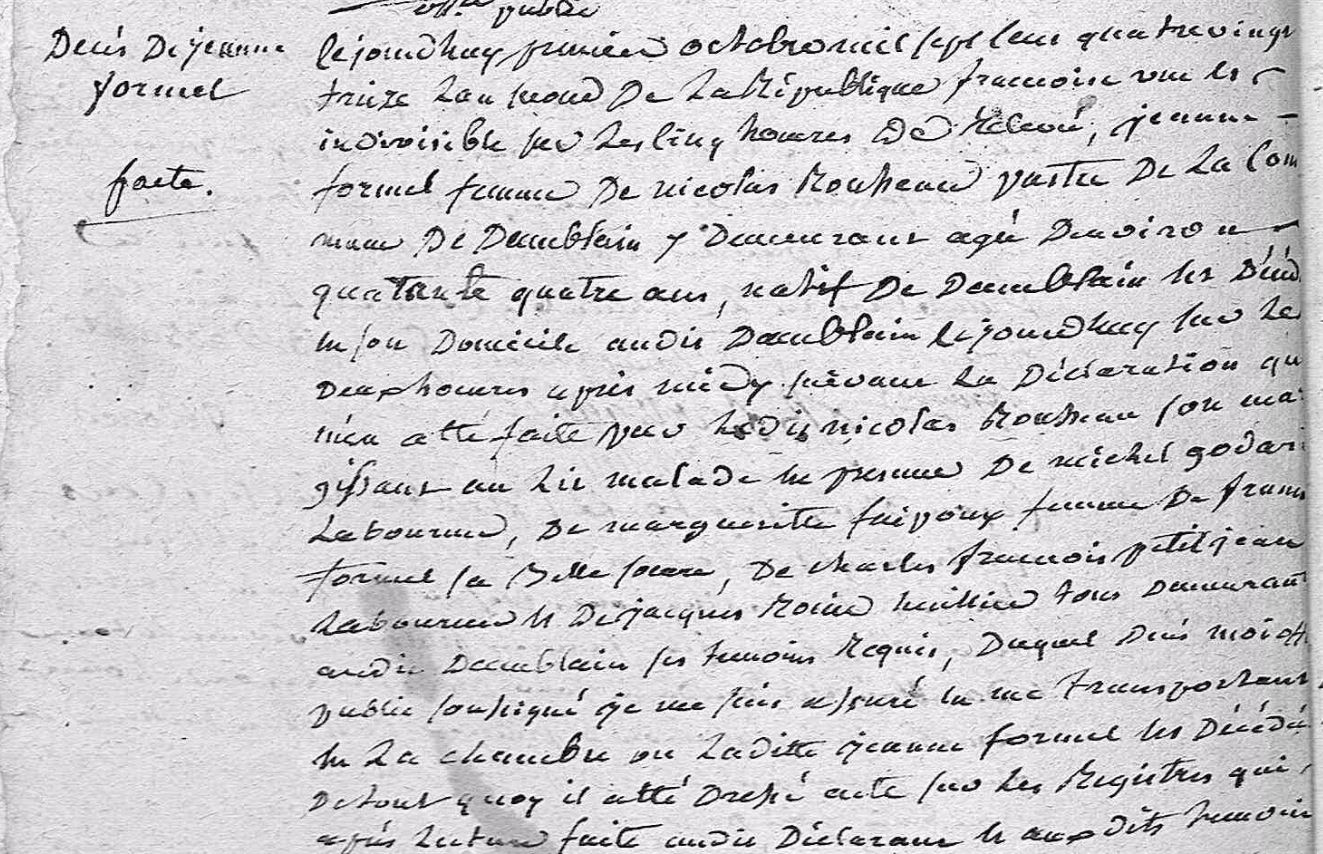 public
Decès De jeanne
formel
faete.
Cejourdhuy premier octobre mil sept cens quatrevingt
treize Lan second De La République francoise une et
indivisible sur Les cinq heures De Relevé, jeanne
formel femme De nicolas Rouheau pastre De La Com
mune De Damblain y Demeurant agé Denviron
quatante quatre ans, natif De Damblain est Décéd
en son Domicile audit Damblain cejourdhuy sur Les
Deux heures après midy suivant La Déclaration qu
men a été faitte par Ledit nicolas Rouheau son ma
gissant au Lit malade en presence De michel godar
Laboureur, De marguerite faipoux femme De franc
formel sa Belle soeure, De charles francois petitjean
Laboureur et De jacques Roine huillier tous Demeurant
audit Damblain ses temoins Requis, Duquel Decès moi off
public soussigné je me suis assuré en me transportant
en La chambre ou Laditte jeanne formel est Décédé
De tout quoy il a été Dressé acte sur Les Registres qui,
après Lecture faitte audit Déclarant et auxdits temoin